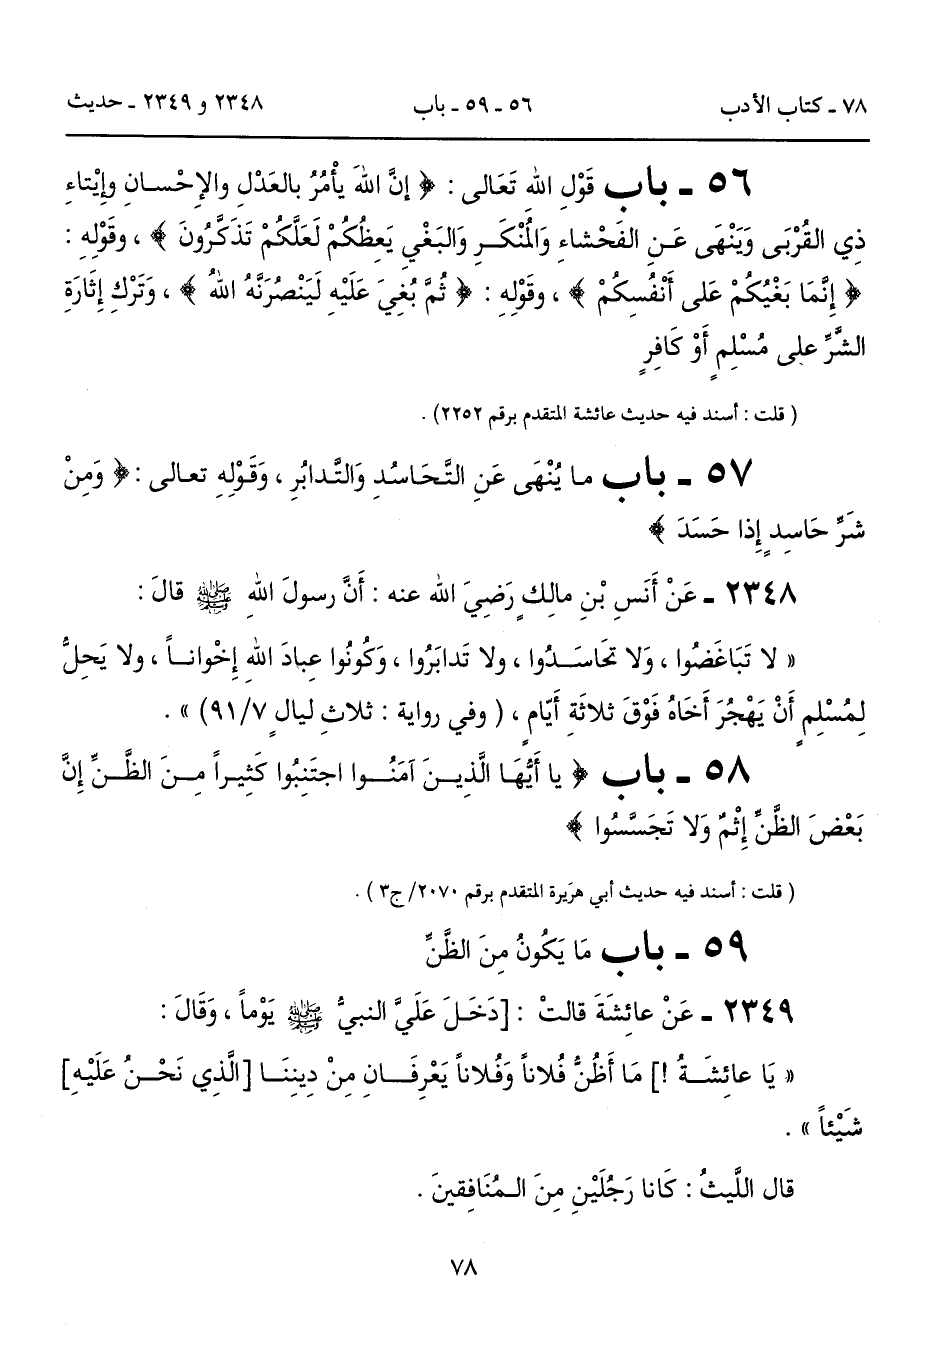 ٧٨ ـ كتاب الأدب ٥٦ ـ ٥٩ ـ باب ٢٣٤٨ و ٢٣٤٩ ـ حديث
٥٦ ـ باب قَوْلِ اللهِ تَعَالى : ﴿ إنَّ اللهَ يأْمُرُ بالعَدْلِ والإحْسانِ وإيْتاءِ
ذي القُرْبَى وَيَنْهَى عَنِ الفَحْشاءِ وَالمُنْكَرِ وَالبَغْيِ يَعِظُكُمْ لَعَلَّكُمْ تَذَكَّرُونَ ﴾ ، وقَوْلِهِ :
﴿ إنَّمَا بَغْيُكُمْ عَلى أَنْفُسِكُمْ ﴾ ، وقَوْلِهِ : ﴿ ثُمَّ بُغِيَ عَلَيْهِ لَيَنْصُرَنَّهُ اللهُ ﴾ ، وَتَرْكِ إثَارَةِ
الشَّرِّ على مُسْلِمٍ أَوْ كَافِرٍ
( قلت : أسند فيه حديث عائشة المتقدم برقم ٢٢٥٢) .
٥٧ ـ باب ما يُنْهَى عَنِ التَّحَاسُدِ وَالتَّدابُرِ ، وَقَوْلِهِ تعالى : ﴿ وَمِنْ
شَرِّ حَاسِدٍ إذا حَسَدَ ﴾
٢٣٤٨ ـ عَنْ أَنَسِ بْنِ مالِكٍ رَضِيَ الله عنه : أَنَّ رسولَ اللهِ ﷺ قالَ :
« لا تَبَاغَضُوا ، وَلا تحَاسَدُوا ، ولا تَدابَرُوا ، وَكُونُوا عِبادَ اللهِ إخْواناً ، ولا يَحِلُّ
لِمُسْلِمٍ أَنْ يَهْجُرَ أَخَاهُ فَوْقَ ثلاثَةِ أَيَّامٍ ، ( وفي رواية : ثلاثِ ليالٍ ٩١/٧) » .
٥٨ ـ باب ﴿ يا أَيُّهَا الَّذِينَ آمَنُوا اجتَنِبُوا كَثيراً مِنَ الظَّنِّ إنَّ
بَعْضَ الظَّنِّ إثْمٌ وَلا تَجَسَّسُوا ﴾
( قلت : أسند فيه حديث أبي هرَيرة المتقدم برقم ٢٠٧٠/ ج٣ ) .
٥٩ ـ باب مَا يَكُونُ مِنَ الظَّنِّ
٢٣٤٩ ـ عَنْ عائِشَةَ قالتْ : [دَخَلَ عَلَيَّ النبيُّ ﷺ يَوْماً ، وَقَالَ :
« يَا عائِشَةُ !] مَا أَظُنُّ فُلاناً وَفُلاناً يَعْرِفَانِ مِنْ دِينِنَا [الَّذِي نَحْنُ عَلَيْهِ]
شَيْئاً » .
قال اللَّيثُ : كَانا رَجُلَيْنِ مِنَ المُنَافِقينَ .
٧٨